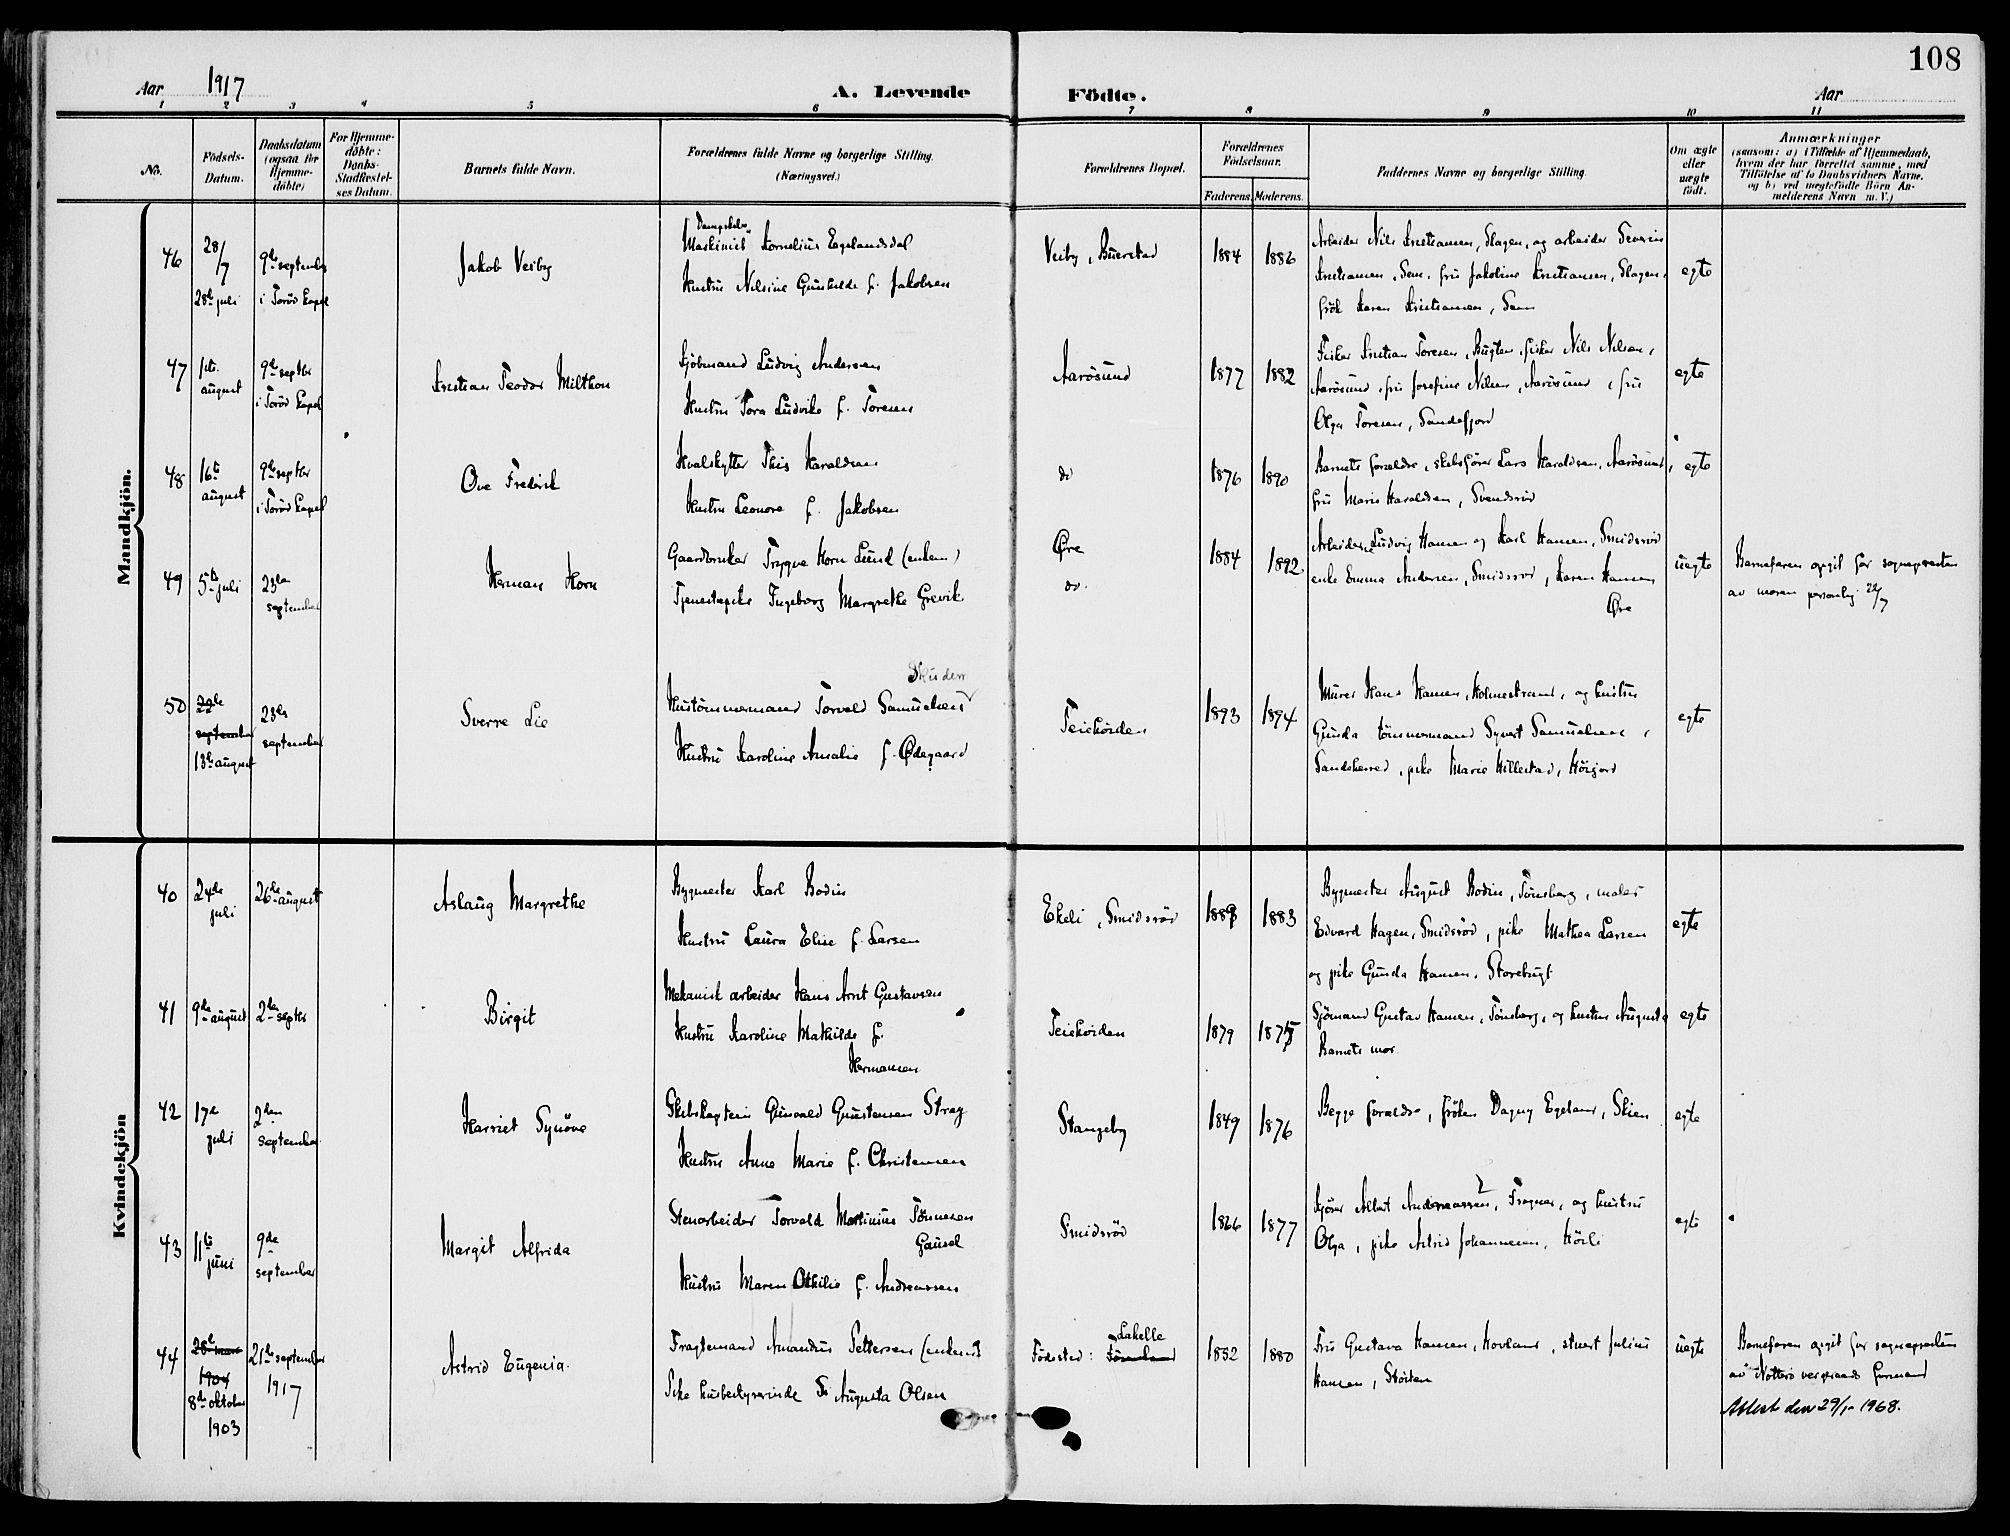 108
Aar 1917
A. Levende Födte.
Aar
1 2 3 4 5 6 7 8 9 10 11
No.
Födsels-Datum.
Daabsdatum (ogsaa for Hjemme-döbte)
For Hjemme-döbte: Daabs-Stadfæstel-ses Datum.
Barnets fulde Navn.
Forældrenes fulde Navne og borgerlige Stilling. (Næringsvei.)
Forældrenes Bopæl.
Forældrenes Födselsaar.
Faderens. Moderens.
Faddernes Navne og borgerlige Stilling.
Om ægte eller uægte födt.
Anmærkninger
(saasom: a) i Tilfælde af Hjemmedaab, hvem der har forrettet samme, med Tilföielse af to Daabsvidners Navne, og b) ved uægtefödte Börn An-melderens Navn m. V.)
Mandkjön.
46
28/7
28de juli
9de september
i Torød kapel
Jakob Veiby
Maskinist Kornelius Egelandsdal
Hustru Nilsine Gunhilde f. Jakobsen
Veiby, Buerstad
1884 1886
Arbeider Nils Kristiansen, Slagen, og arbeider Severin
Kristiansen, Sem, fru Jakobine Kristiansen, Slagen,
frøk Karen Kristiansen, Sem
egte
47
1ste august
9de septbr
i Torød kapel
Kristian Teodor Milthon
Kjøbmand Ludvig Andersen
Hustru Tora Ludvika f. Toresen
Aarøsund
1877 1882
Fisker Kristian Toresen, Bugten, fisker Nils Nilsen,
Aarøsund, fru Josefine Nilsen, Aarøsund, fru
Olga Toresen, Sandefjord
egte
48
16de august
9de septbr
i Torød kapel
Ove Fredrik
Hvalskytter This Haraldsen
Hustru Leonore f. Jakobsen
do
1876 1890
Barnets forældre, skibsfører Lars Haraldsen, Aarøsund,
fru Marie Haraldsen, Svendsrød
egte
49
5te juli
23de september
Herman Horn
Gaardbruker Trygve Horn Lund (enkem)
Tjenestepike Ingeborg Margrethe Grevik
Øre
do.
1884 1892
Arbeider Ludvig Hansen og Karl Hansen, Smidsrød
enke Emma Andersen, Smidsrød, Karen Hansen
Øre
uegte
Barnefaren opgit for sogneprästen
av moren personlig 22/7
50
september
13de august
23de september
Sverre Lie
Hustømmermand Torvald Samuelsen
Hustru Karoline Amalie f. Ødegaard
Teiehøiden
1893 1894
Murer Hans Hansen, Holmestrand, og hustru
Gunda tømmermand Syvert Samuelsen,
Sandeherred, pike Marie Hillestad, Høijord
egte
Kvindekjön
40
24de juli
26de august
Aslaug Margrethe
Bygmester Karl Bodin
Hustru Laura Elise f. Larsen
Ekeli, Smidsrød
1883
Bygmester August Bodin, Tønsberg, maler
Edvard Hagen, Smidsrød, pike Mathea Larsen
og pike Gunda Hansen, Storebugt
egte
41
9de august
2den septbr
Birgit
Mekanisk arbeider Hans Arnt Gustavsen
Hustru Karoline Mathilde f.
Hermansen
Teiehøiden
1879
Sjømand Gustav Hansen, Tønsberg, og hustru Augusta
Barnets mor
egte
42
17de juli
2den september
Harriet Synøve
Skibskaptein Gunvald Gunstensen Stray
Hustru Anne Marie f. Christensen
Stangeby
1849 1876
Begge forældre, frøken Dagny Egeland, Skien
egte
43
11te juni
9de september
Margit Alfrida
Stenarbeider Torvald Martinius Tønnesen
Gausel
Hustru Maren Othilie f. Andreassen
Smidsrød
1866 1877
Kjører Albert Andreassen, Trogner, og hustru
Olga, pike Astrid Johannesen, Hørli
egte
44
1904
8de oktober
1903
21de september
1917
Astrid Eugenia
Fragtemand Amandus Pettersen (enkem)
Pike husbestyrerinde Augusta Olsen
Fødested: Lakelle
1852 1880
Fru Gustava Hansen, Hovland, stuert Julius
Hansen, Skoiten
uegte
Barnefaren opgit for sogneprästen
av Nøtterø vergeraads formand
Attest den 29/1-1968.